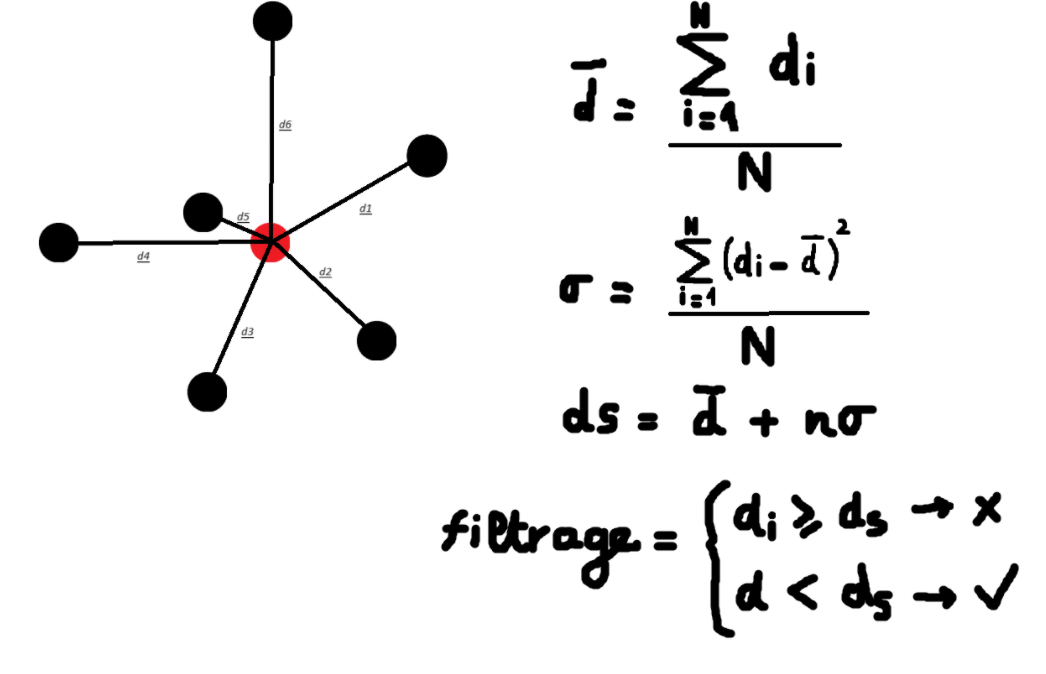 d6
d1
d5
d4
d2
d3
d̄ = N ∑ i=1 di / N
σ = N ∑ i=1 (di - d̄)² / N
ds = d̄ + nσ
filtrage = { di ⩾ ds → x
d < ds → ✓